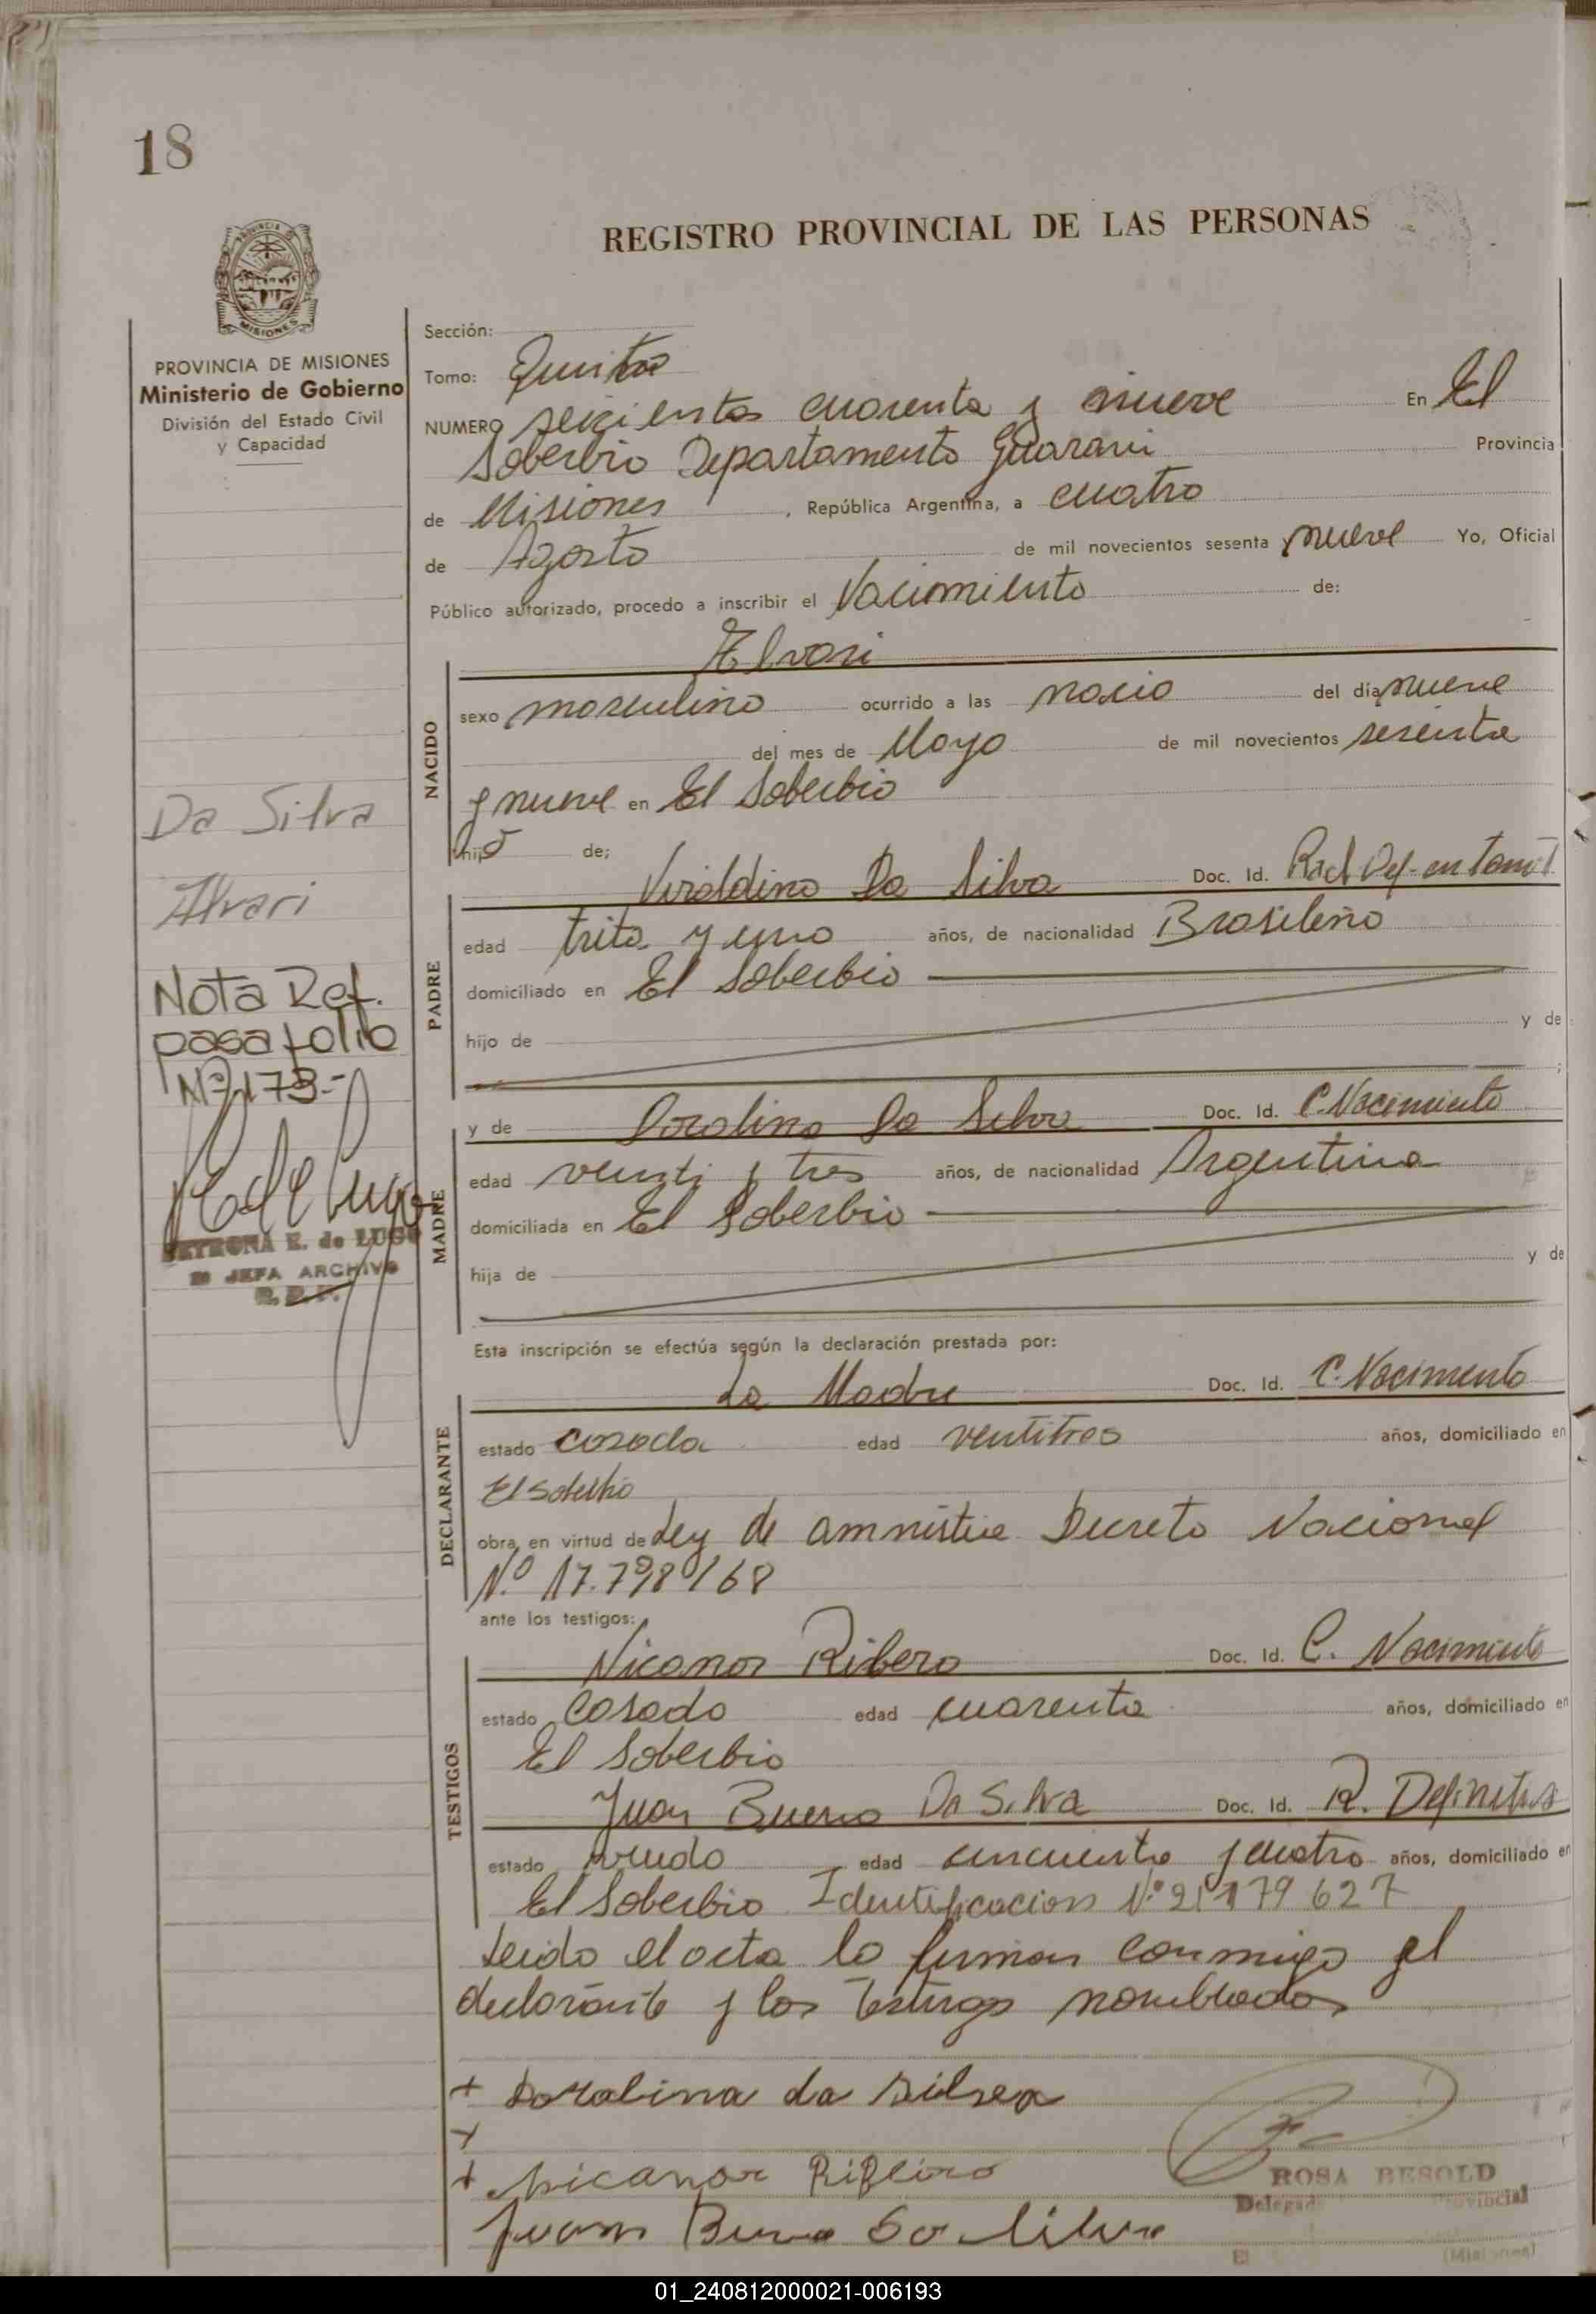 18
REGISTRO PROVINCIAL DE LAS PERSONAS
PROVINCIA DE
MISIONES
PROVINCIA DE MISIONES
Ministerio de Gobierno
División del Estado Civil
y Capacidad
Da Silva
Alvari
Nota Ref.
pasa folio
Nº 173.-
PETRONA E. de LUGO
JEFA ARCHIVO
R. P. P.
Sección:
Tomo:
NUMERO seicientos cuarenta y nueve En El
Soberbio Departamento Guarani Provincia
de Misiones, República Argentina, a cuatro
de Agosto de mil novecientos sesenta y nueve Yo, Oficial
Público autorizado, procedo a inscribir el Nacimiento de:
Alvari
NACIDO
sexo masculino ocurrido a las nacio del día nueve
del mes de Mayo de mil novecientos sesenta
y nueve en El Soberbio
hijo de;
PADRE
Viraldino Da Silva Doc. Id. Rad Def- en Tamt
edad trita y uno años, de nacionalidad Brasileño
domiciliado en El Soberbio
hijo de y de
;
MADRE
y de Doralina Da Silva Doc. Id. C. Nacimiento
edad venti y tres años, de nacionalidad Argentina
domiciliada en El Soberbio
hija de y de
Esta inscripción se efectúa según la declaración prestada por:
DECLARANTE
La Madre Doc. Id. C. Nacimento
estado casada edad ventitres años, domiciliado en
El Soberbio
obra, en virtud de Ley de amnistia Decreto Nacional
Nº 17.798/68
ante los testigos:
TESTIGOS
Nicanor Ribero Doc. Id. C. Nacimiento
estado Casado edad cuarenta años, domiciliado en
El Soberbio
Juan Bueno Da Silva Doc. Id. R. Definitiva
estado viudo edad cincuenta y cuatro años, domiciliado en
El Soberbio Identificacion Nº 21179627
Leido el acta lo firman conmigo el
declarante y los testigos nombrados
+ Doralina da Silva
+
+ Nicanor Ribeiro
Juan Bueno Da Silva
ROSA BESOLD
Delegada Provincial
El
(Misiones)
01_240812000021-006193